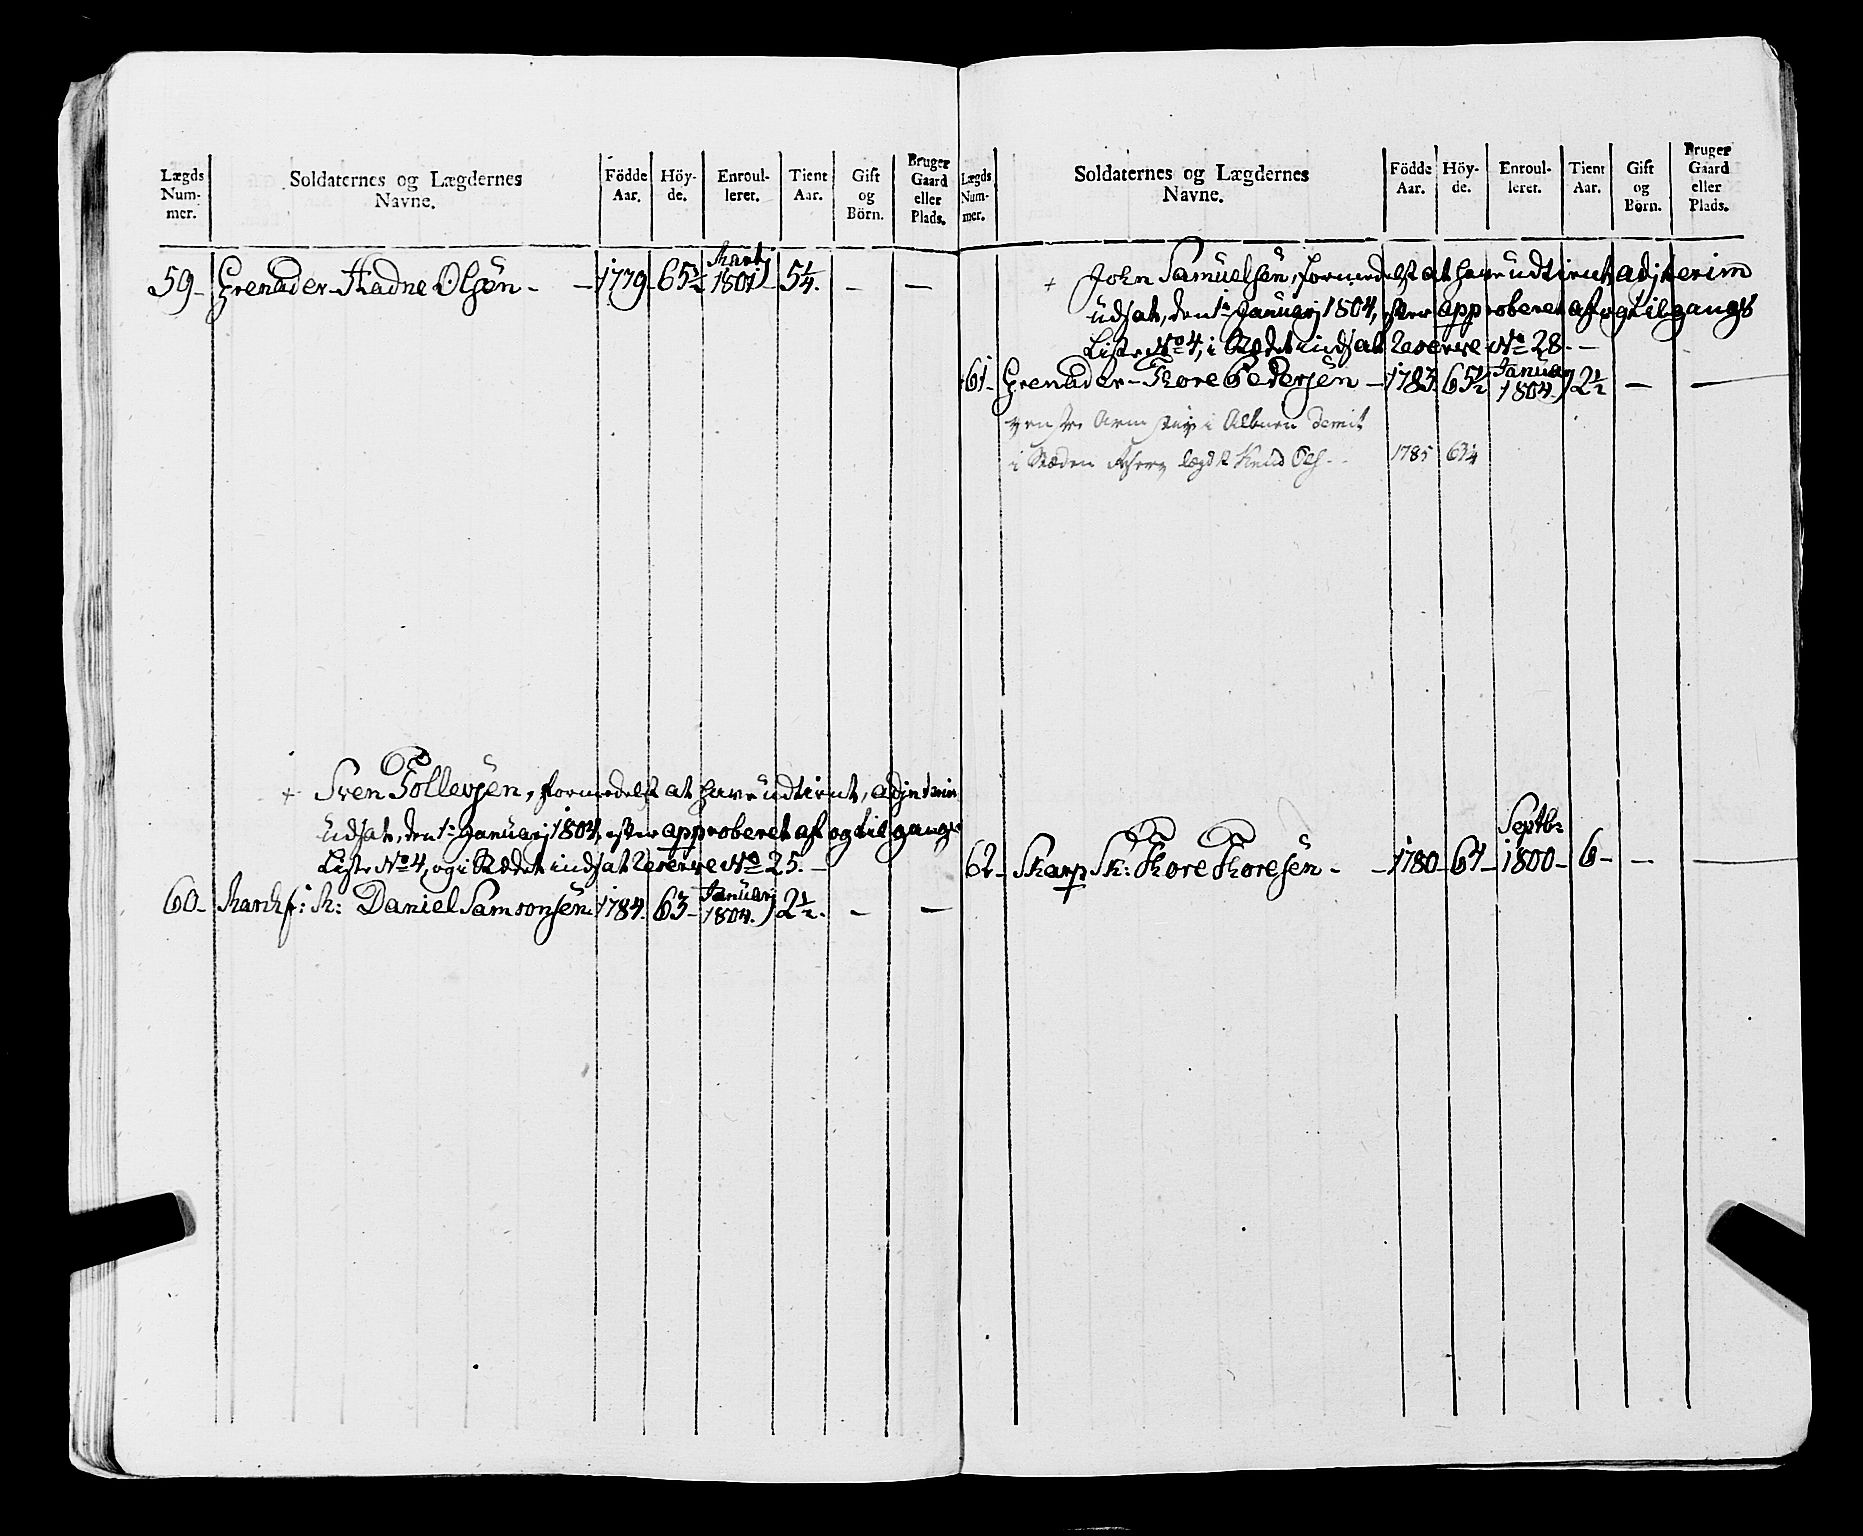 Lægds Num- mer.
Soldaternes og Lægdernes Navne.
Födde Aar.
Höy- de.
Enroul- leret.
Tient Aar.
Gift og Börn.
Bruger Gaard eller Plads.
59 Grenader Hadne Olsen 1779 65½ Martj 1801 5¼ — —
+ Sven Tollevsen, formedelst at have udtient, adjnterim
udsat, den 1te Januarj 1804, efter approberet af og til gangs
Liste No 4, og i Stædet indsat Reserve No 25. —
60 March f: Daniel Samsonsen 1784 63 Januarj 1804 2½ — —
Lægds Num- mer.
Soldaternes og Lægdernes Navne.
Födde Aar.
Höy- de.
Enroul- leret.
Tient Aar.
Gift og Born.
Bruger Gaard eller Plads.
+ John Samuelsen, formedelst at have udtient, adjterim
udsat, den 1te Januarj 1804, efter approberet af og til gangs
Liste No 4, i Stædet indsat Reserve No 28. —
61 Grenader Thore Pedersen 1783 65½ Januarj 1804 2½ — —
venstre Arm stiv i Albuen demit
i Stæden lægdt Knud Ols 1785 63¼
62 Skarp Sk: Thore Thoresen 1780 64 Septbr 1800 6 — —